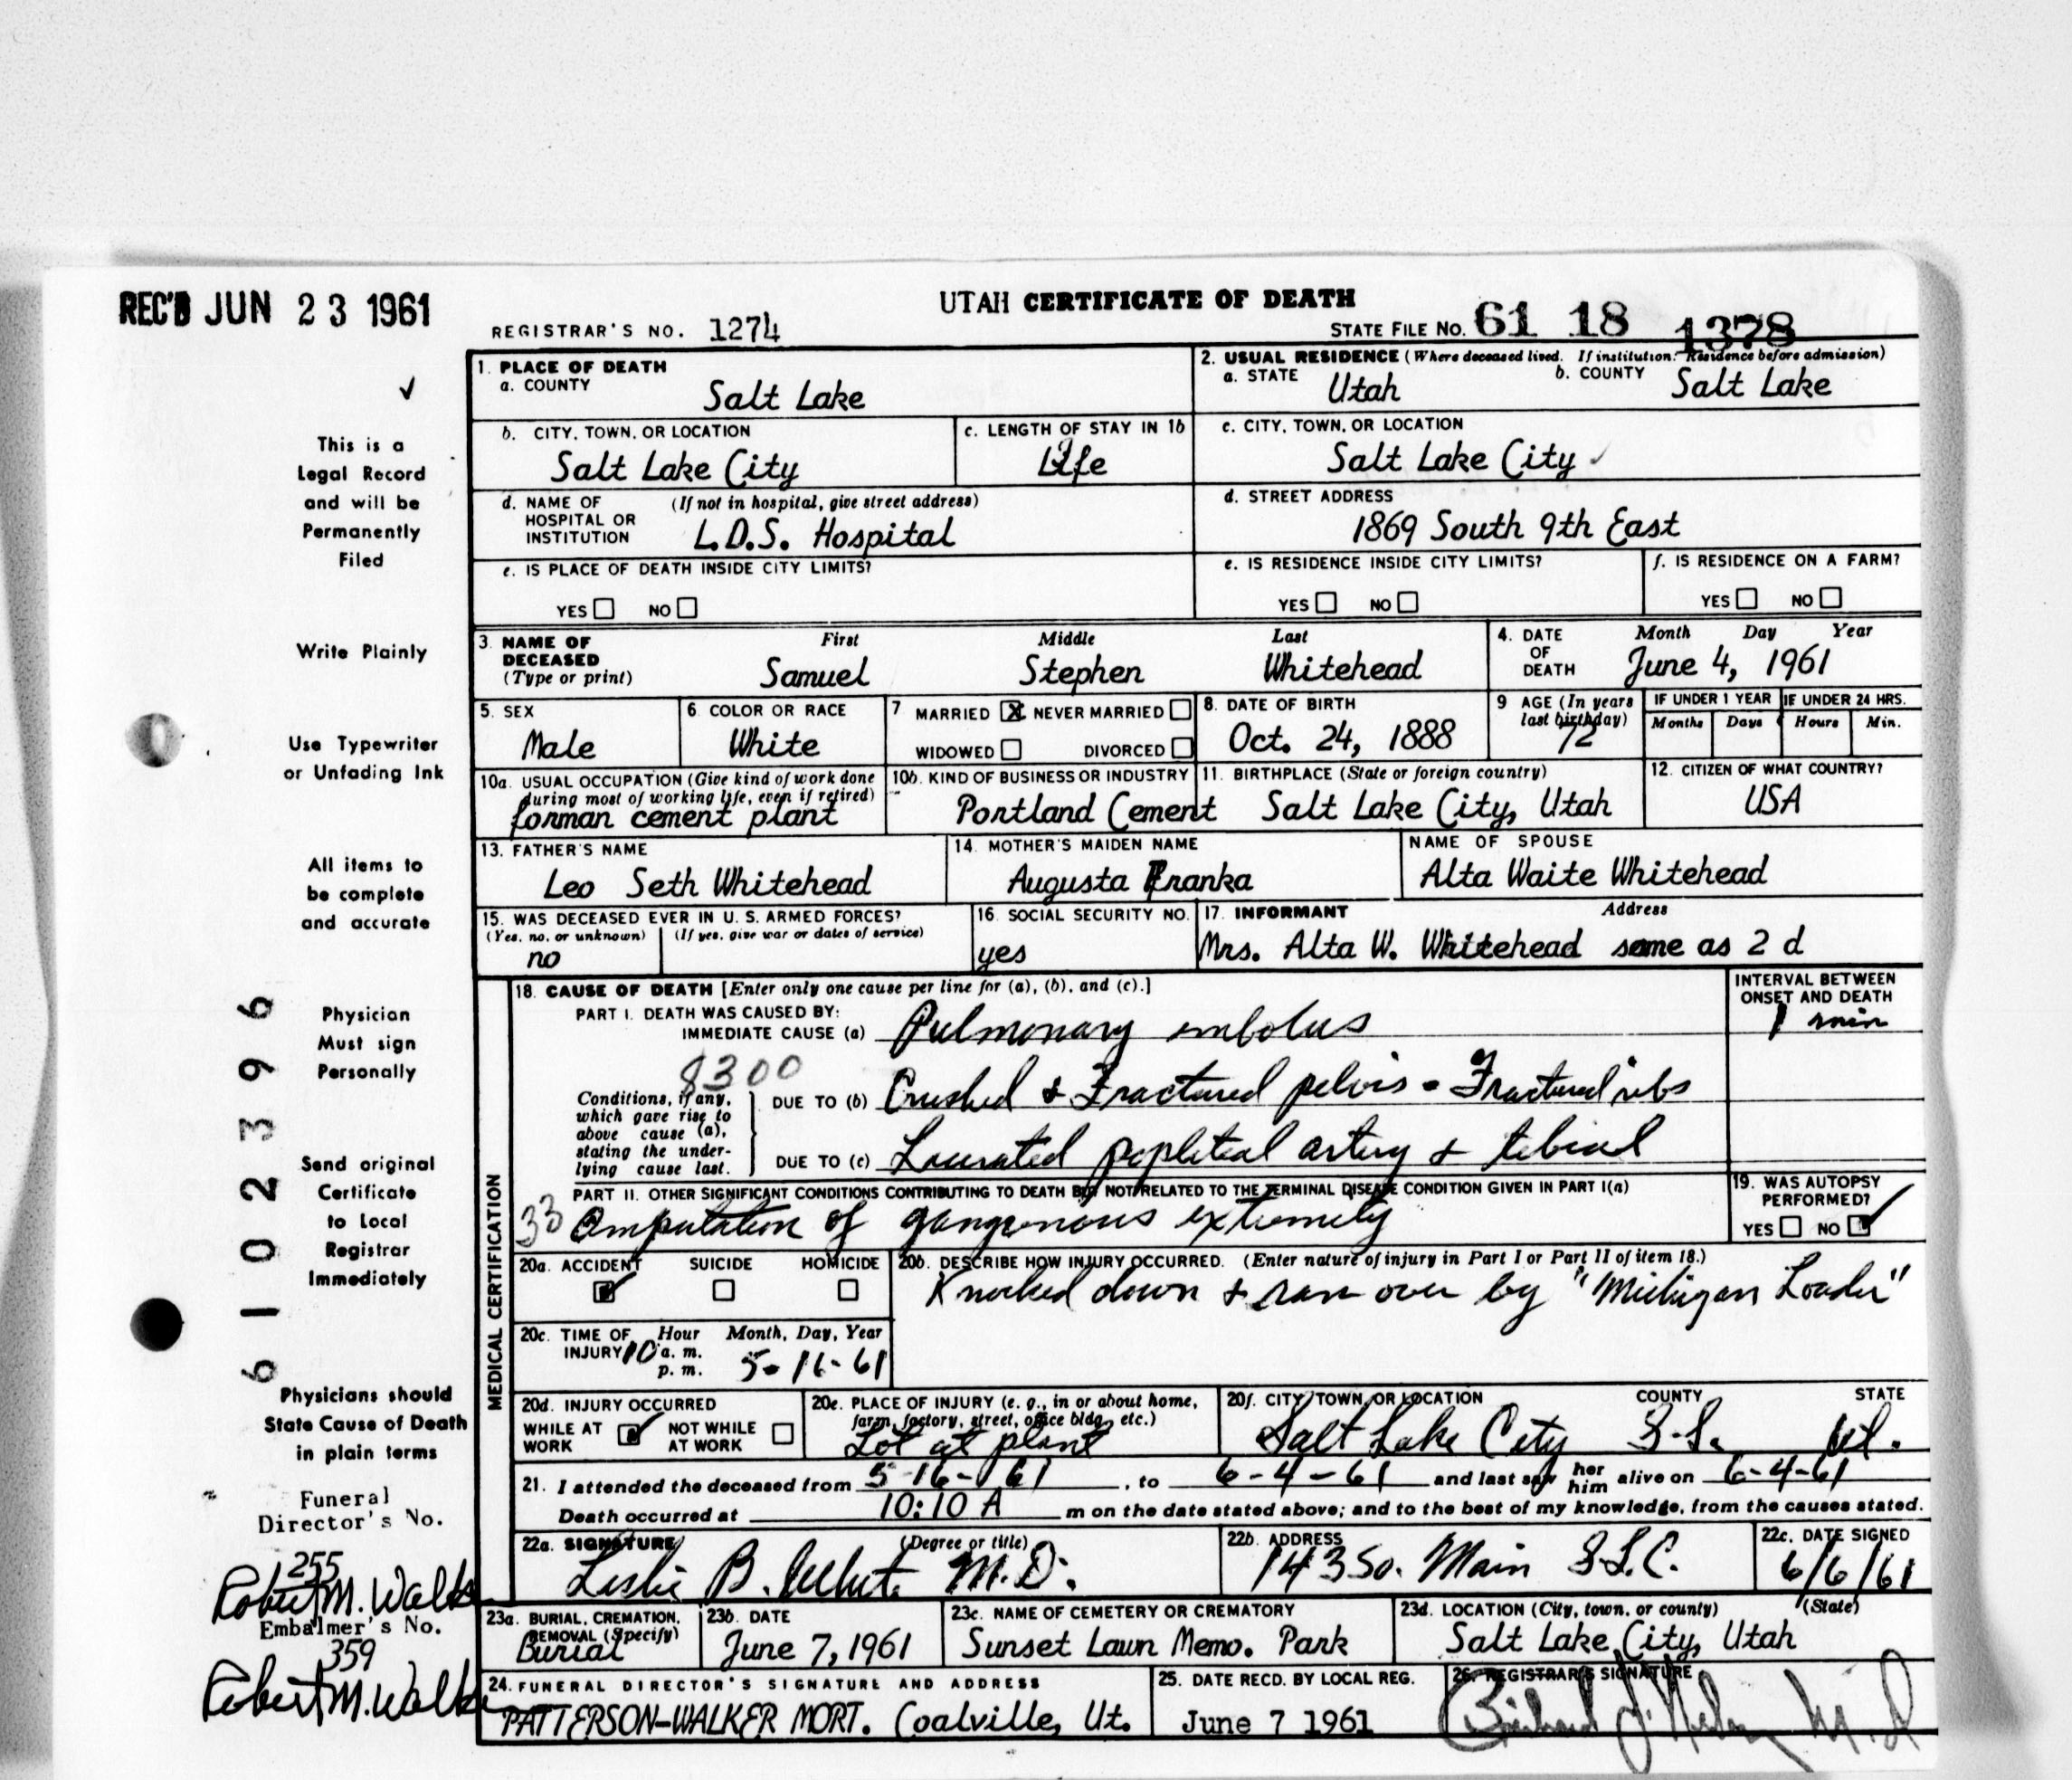 REC'D JUN 23 1961
UTAH CERTIFICATE OF DEATH
REGISTRAR'S NO. 1274
STATE FILE NO. 61 18 1378
1. PLACE OF DEATH
a. COUNTY
Salt Lake
2. USUAL RESIDENCE (Where deceased lived. If institution: Residence before admission)
a. STATE Utah b. COUNTY Salt Lake
b. CITY, TOWN, OR LOCATION
Salt Lake City
c. LENGTH OF STAY IN 1b
Life
c. CITY, TOWN, OR LOCATION
Salt Lake City
d. NAME OF HOSPITAL OR INSTITUTION (If not in hospital, give street address)
L.D.S. Hospital
d. STREET ADDRESS
1869 South 9th East
e. IS PLACE OF DEATH INSIDE CITY LIMITS?
YES NO
e. IS RESIDENCE INSIDE CITY LIMITS?
YES NO
f. IS RESIDENCE ON A FARM?
YES NO
3. NAME OF DECEASED (Type or print)
First Middle Last
Samuel Stephen Whitehead
4. DATE OF DEATH
Month Day Year
June 4, 1961
5. SEX
Male
6. COLOR OR RACE
White
7 MARRIED X NEVER MARRIED
WIDOWED DIVORCED
8. DATE OF BIRTH
Oct. 24, 1888
9 AGE (In years last birthday)
72
IF UNDER 1 YEAR
Months Days
IF UNDER 24 HRS.
Hours Min.
10a. USUAL OCCUPATION (Give kind of work done during most of working life, even if retired)
forman cement plant
10b. KIND OF BUSINESS OR INDUSTRY
Portland Cement
11. BIRTHPLACE (State or foreign country)
Salt Lake City, Utah
12. CITIZEN OF WHAT COUNTRY?
USA
13. FATHER'S NAME
Leo Seth Whitehead
14. MOTHER'S MAIDEN NAME
Augusta Franka
NAME OF SPOUSE
Alta Waite Whitehead
15. WAS DECEASED EVER IN U. S. ARMED FORCES?
(Yes, no, or unknown) (If yes, give war or dates of service)
no
16. SOCIAL SECURITY NO.
yes
17. INFORMANT Address
Mrs. Alta W. Whitehead same as 2 d
MEDICAL CERTIFICATION
18. CAUSE OF DEATH [Enter only one cause per line for (a), (b), and (c).]
INTERVAL BETWEEN ONSET AND DEATH
PART I. DEATH WAS CAUSED BY:
IMMEDIATE CAUSE (a) Pulmonary embolus
1 min
8300
Conditions, if any, which gave rise to above cause (a), stating the underlying cause last.
DUE TO (b) Crushed & Fractured pelvis - Fractured ribs
DUE TO (c) Lacerated popliteal artery & tibial
PART II. OTHER SIGNIFICANT CONDITIONS CONTRIBUTING TO DEATH BUT NOT RELATED TO THE TERMINAL DISEASE CONDITION GIVEN IN PART I(a)
33 Amputation of gangrenous extremity
19. WAS AUTOPSY PERFORMED?
YES NO
20a. ACCIDENT SUICIDE HOMICIDE
20b. DESCRIBE HOW INJURY OCCURRED. (Enter nature of injury in Part I or Part II of item 18.)
Knocked down & ran over by "Michigan Loader"
20c. TIME OF INJURY Hour Month, Day, Year
10 a. m.
p. m. 5-16-61
20d. INJURY OCCURRED
WHILE AT WORK NOT WHILE AT WORK
20e. PLACE OF INJURY (e. g., in or about home, farm, factory, street, office bldg., etc.)
Lot at plant
20f. CITY, TOWN, OR LOCATION COUNTY STATE
Salt Lake City S.L. Ut.
21. I attended the deceased from 5-16-61, to 6-4-61 and last saw her him alive on 6-4-61
Death occurred at 10:10 A m on the date stated above; and to the best of my knowledge, from the causes stated.
22a. SIGNATURE (Degree or title)
Leslie B. White M.D.
22b. ADDRESS
143 So. Main S.L.C.
22c. DATE SIGNED
6/6/61
23a. BURIAL, CREMATION, REMOVAL (Specify)
Burial
23b. DATE
June 7, 1961
23c. NAME OF CEMETERY OR CREMATORY
Sunset Lawn Memo. Park
23d. LOCATION (City, town, or county) (State)
Salt Lake City, Utah
24. FUNERAL DIRECTOR'S SIGNATURE AND ADDRESS
PATTERSON-WALKER MORT. Coalville, Ut.
25. DATE RECD. BY LOCAL REG.
June 7 1961
26. REGISTRAR'S SIGNATURE
This is a
Legal Record
and will be
Permanently
Filed
Write Plainly
Use Typewriter
or Unfading Ink
All items to
be complete
and accurate
Physician
Must sign
Personally
Send original
Certificate
to Local
Registrar
Immediately
Physicians should
State Cause of Death
in plain terms
61102396
Funeral
Director's No.
255
Robert M. Walk
Embalmer's No.
359
Robert M. Walk